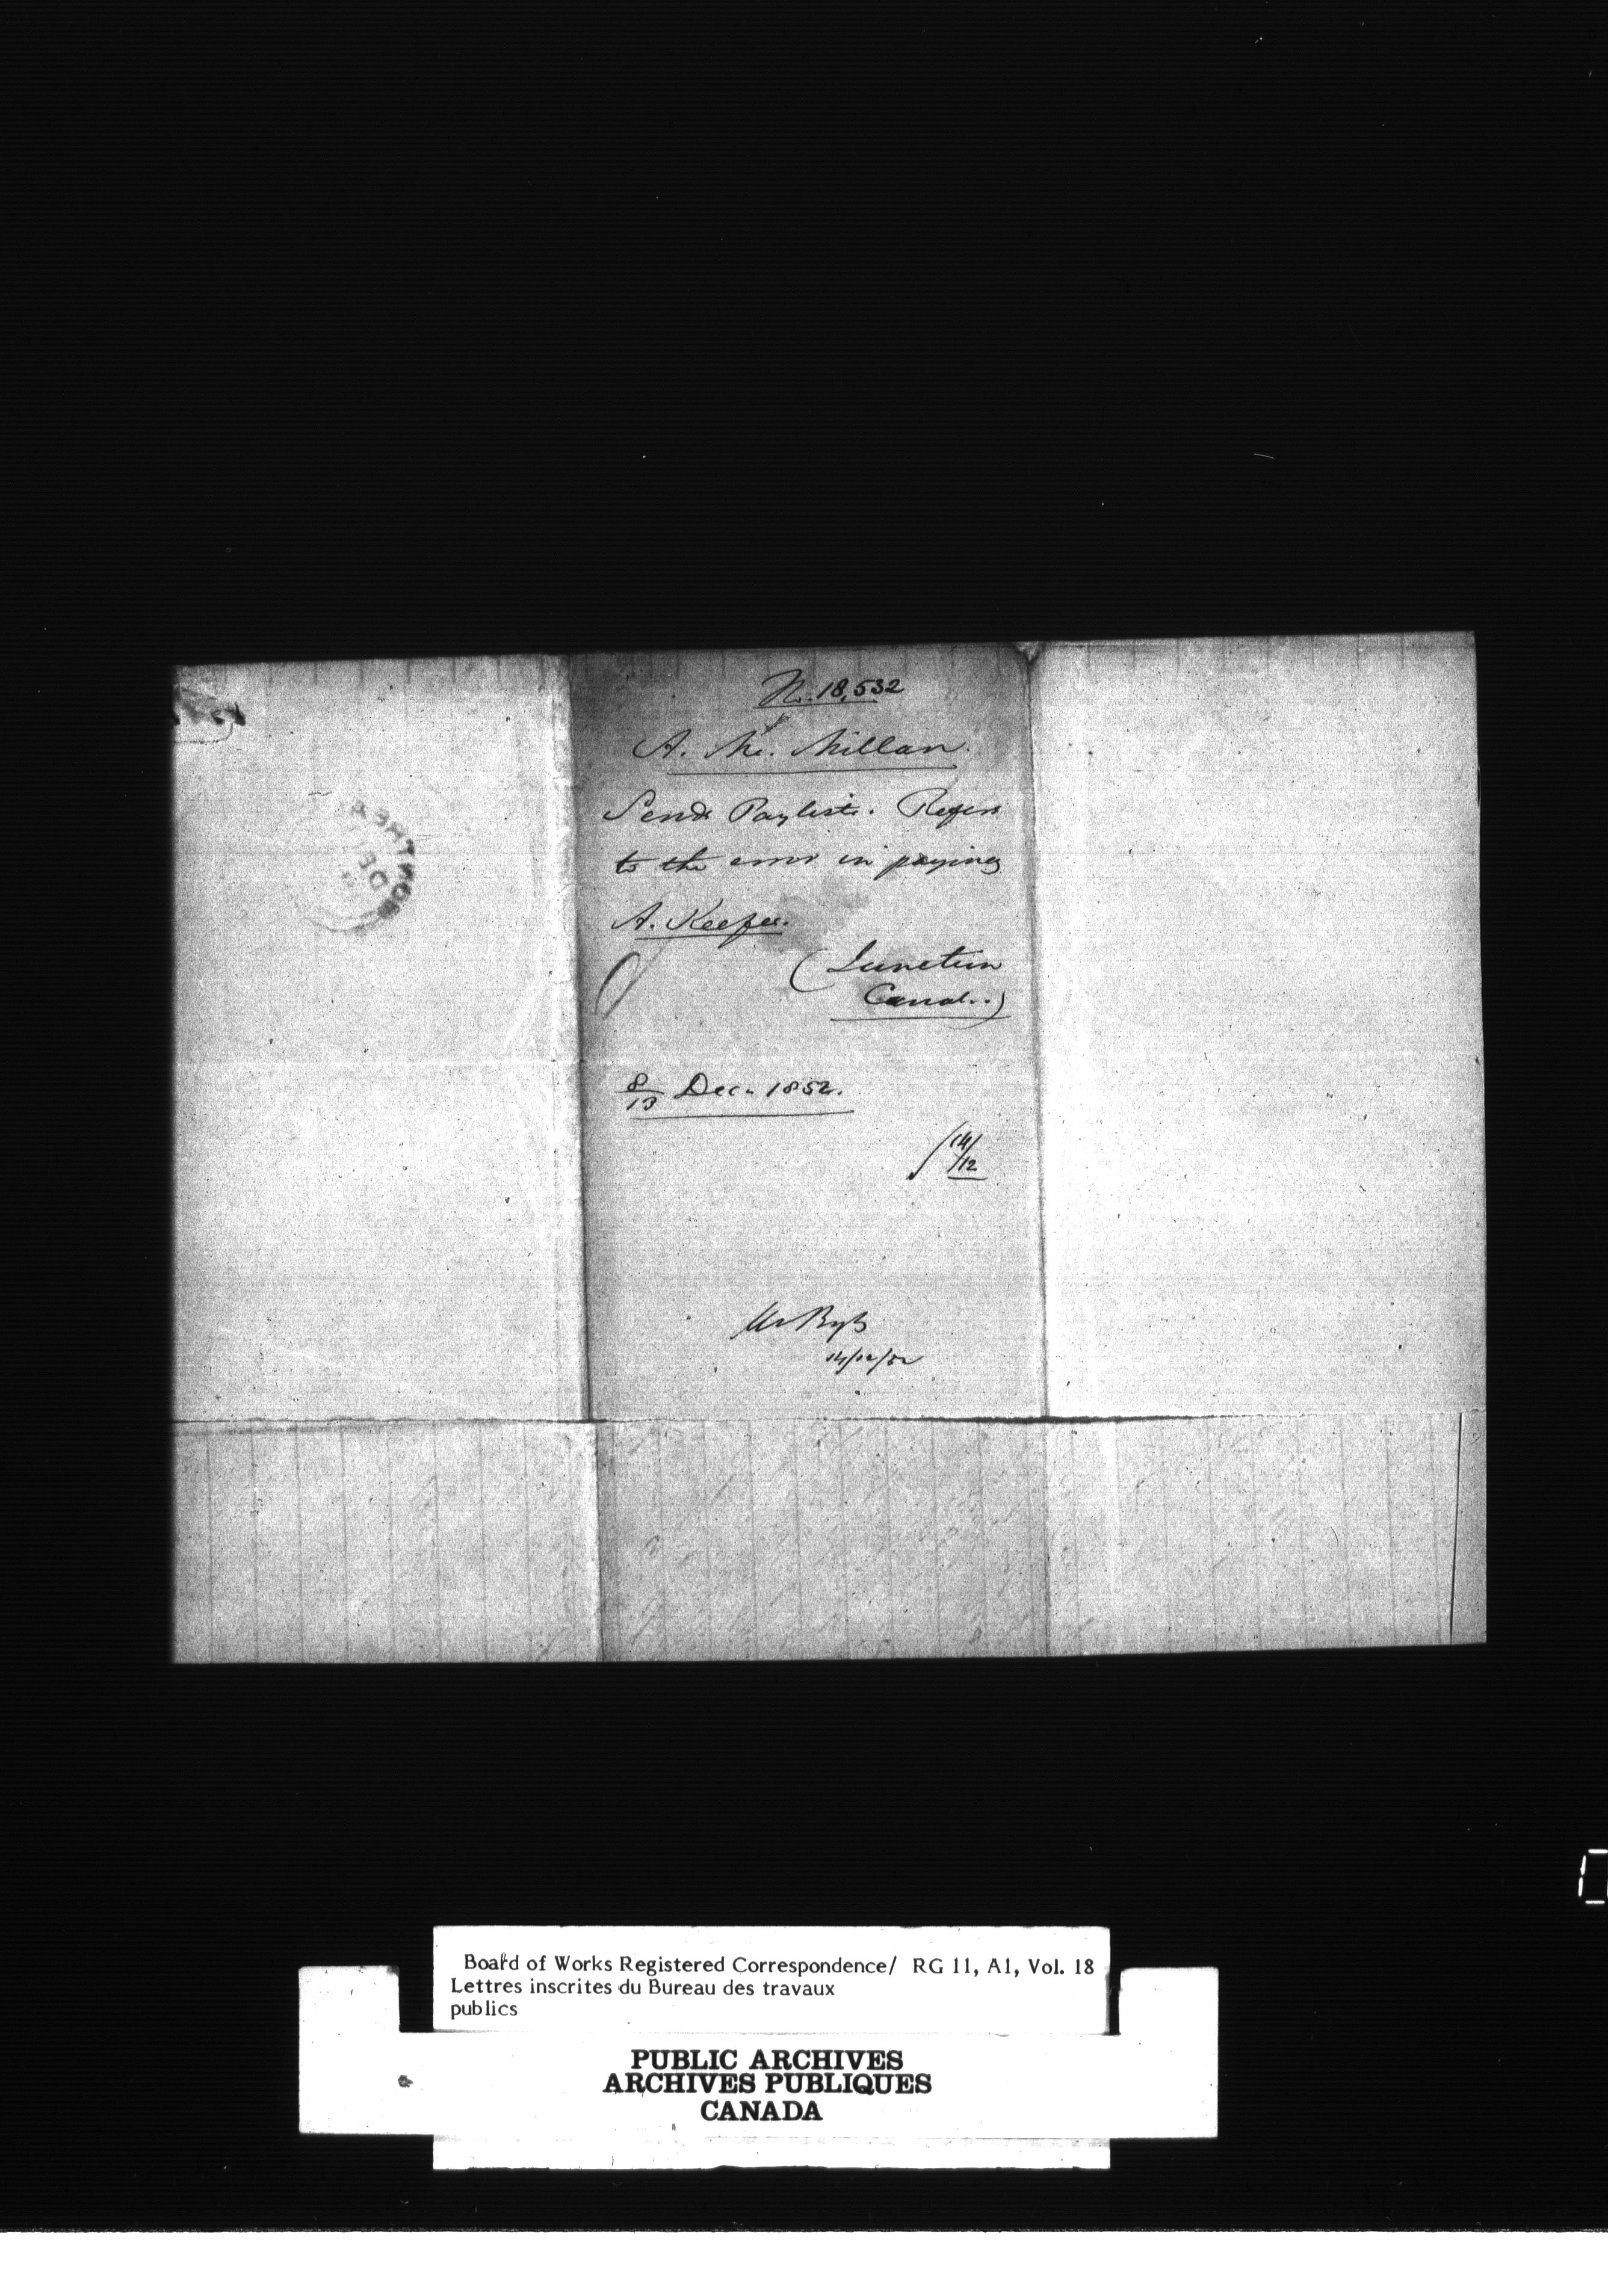 No. 18,532
A. Mc. Millan.
Sends Paylists. Refers
to the error in paying
A. Keefer.
(Junction
Canal..)
8/13 Dec. 1852.
14/12
14/12/52
DE
Board of Works Registered Correspondence/ RG 11, A1, Vol. 18
Lettres inscrites du Bureau des travaux
publics
PUBLIC ARCHIVES
ARCHIVES PUBLIQUES
CANADA